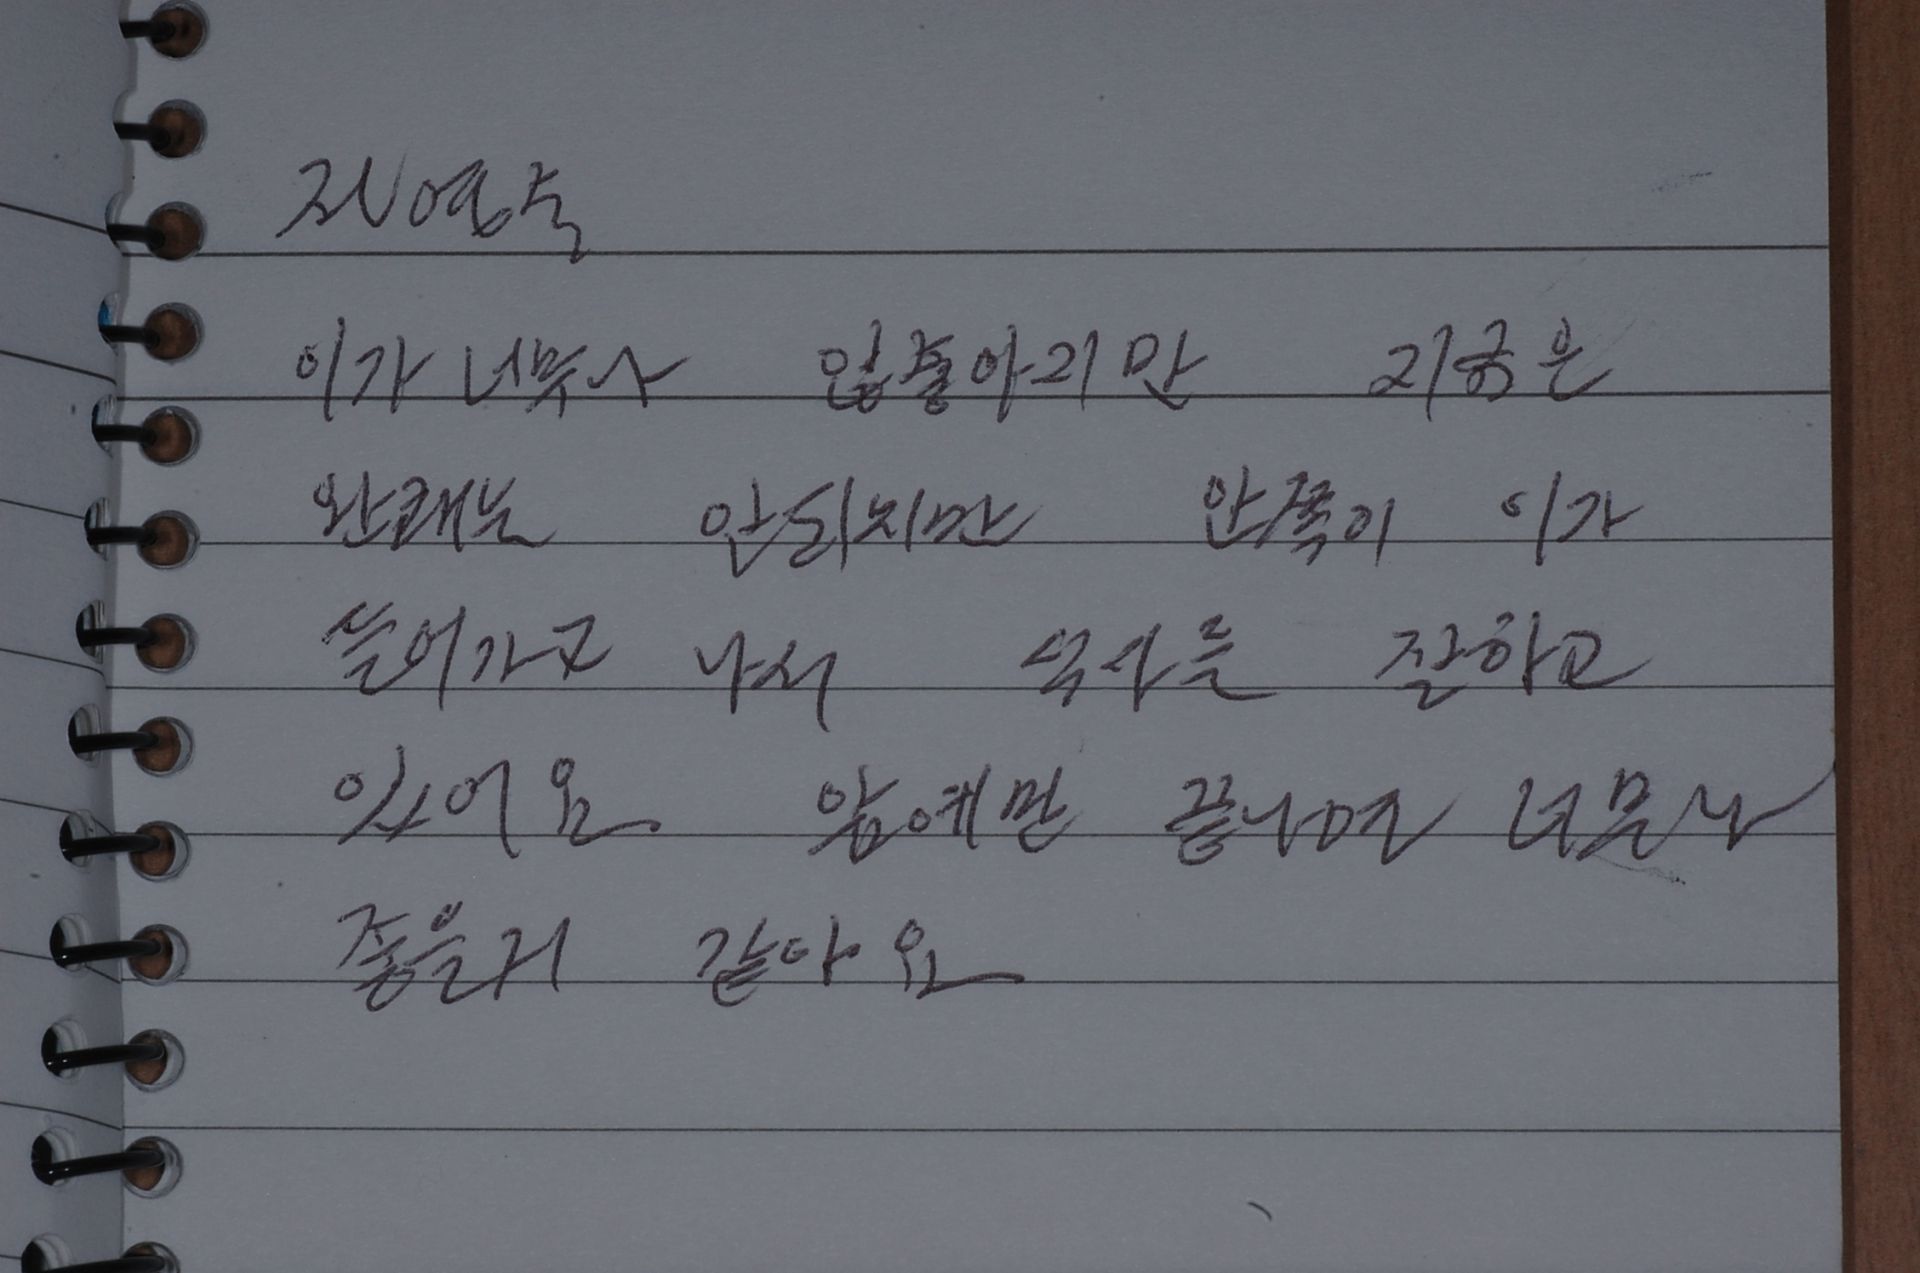 진영숙
이가 너무나 않좋아지만 지금은
완쾌는 안되지만 안쪽이 이가
들어가고 나서 식사를 잘하고
있어요 앞에만 끝나면 너무나
좋을거 같아요